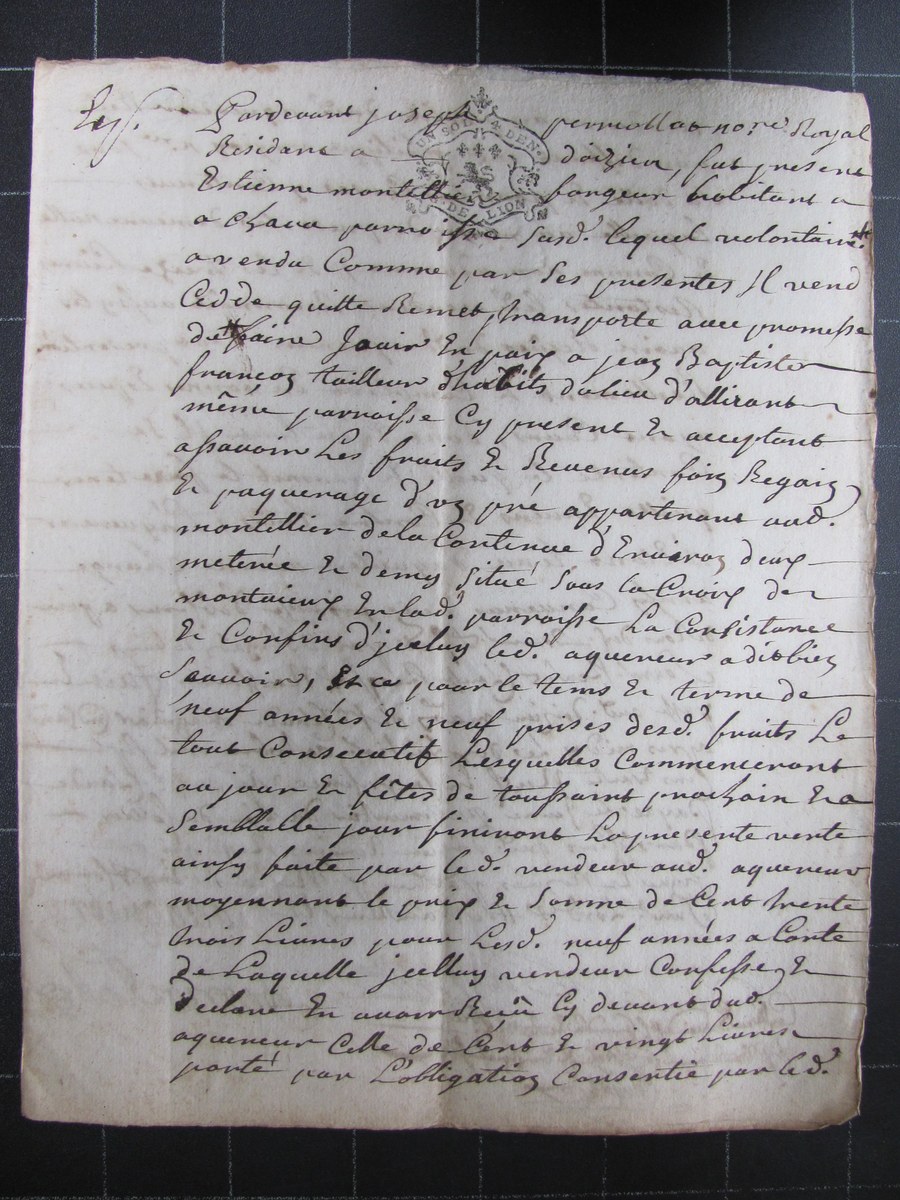 Exp.
Pardevant joseph perrollat no.re Royal
Residant a doizieu, fut present
Estienne montellier forgeur habitant a
a chava parroisse susd. lequel volontairemt
a vendu Comme par ses presentes Il vend
Cedde quitte Remet, transporte avec promesse
de faire Jouir En paix a jean Baptiste
françois tailleur d'habits du lieu d'allirant
même parroisse Cy present Et acceptant
assavoir Les fruits Et Revenus foin Regain
Et paquerage d'un pré appartenant aud.
montellier de la Contenue d'Environ deux
meterée Et demy situé sous la Croix de
montvieux En lad. parroisse La Consistance
Et Confins d'jcelluy led. aquereur a dit bien
sçavoir, Et ce pour le tems Et terme de
neuf années Et neuf prises desd. fruits Le
tout Consecutif Lesquelles Commenceront
au jour Et fêtes de toussaint prochain Et a
semblable jour finiront La presente vente
ainsy faite par led. vendeur aud. aquereur
moyennant le prix Et somme de Cent trente
trois Livres pour Lesd. neuf années a Conte
de Laquelle jcelluy vendeur Confesse Et
Declare En avoir Reçû Cy devant dud.
aquereur Celle de Cent Et vingt Livres
porté par L'obligation Consentie par led.
UN SOL 4 DEN.
DE LION